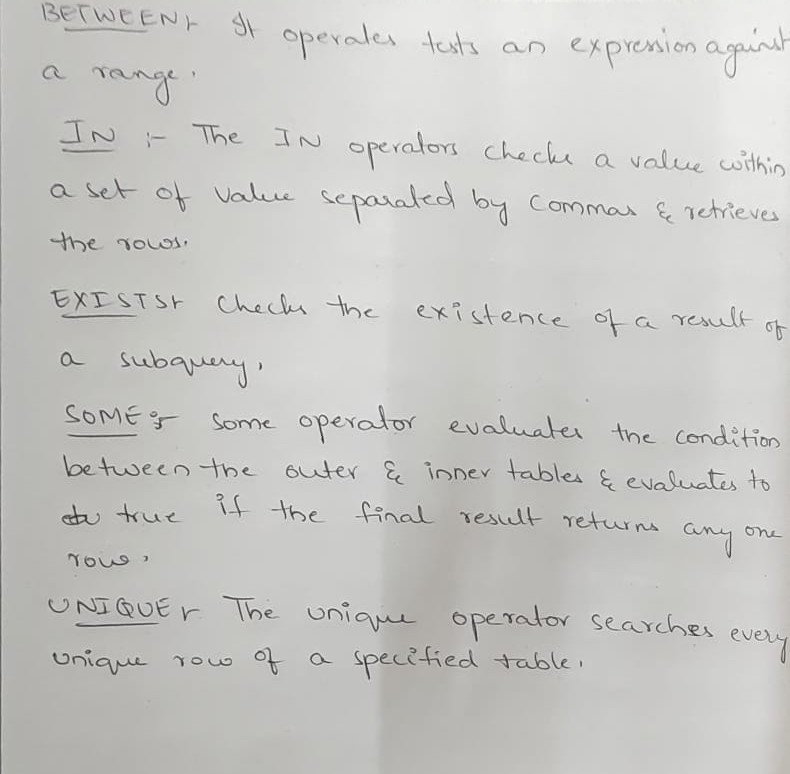 BETWEEN:- It operates tests an expression against
a range.
IN :- The IN operators checks a value within
a set of value separated by commas & retrieves
the rows.
EXISTS:- Checks the existence of a result of
a subquery,
SOME:- Some operator evaluates the condition
between the outer & inner tables & evaluates to
true if the final result returns any one
row,
UNIQUE:- The unique operator searches every
unique row of a specified table.